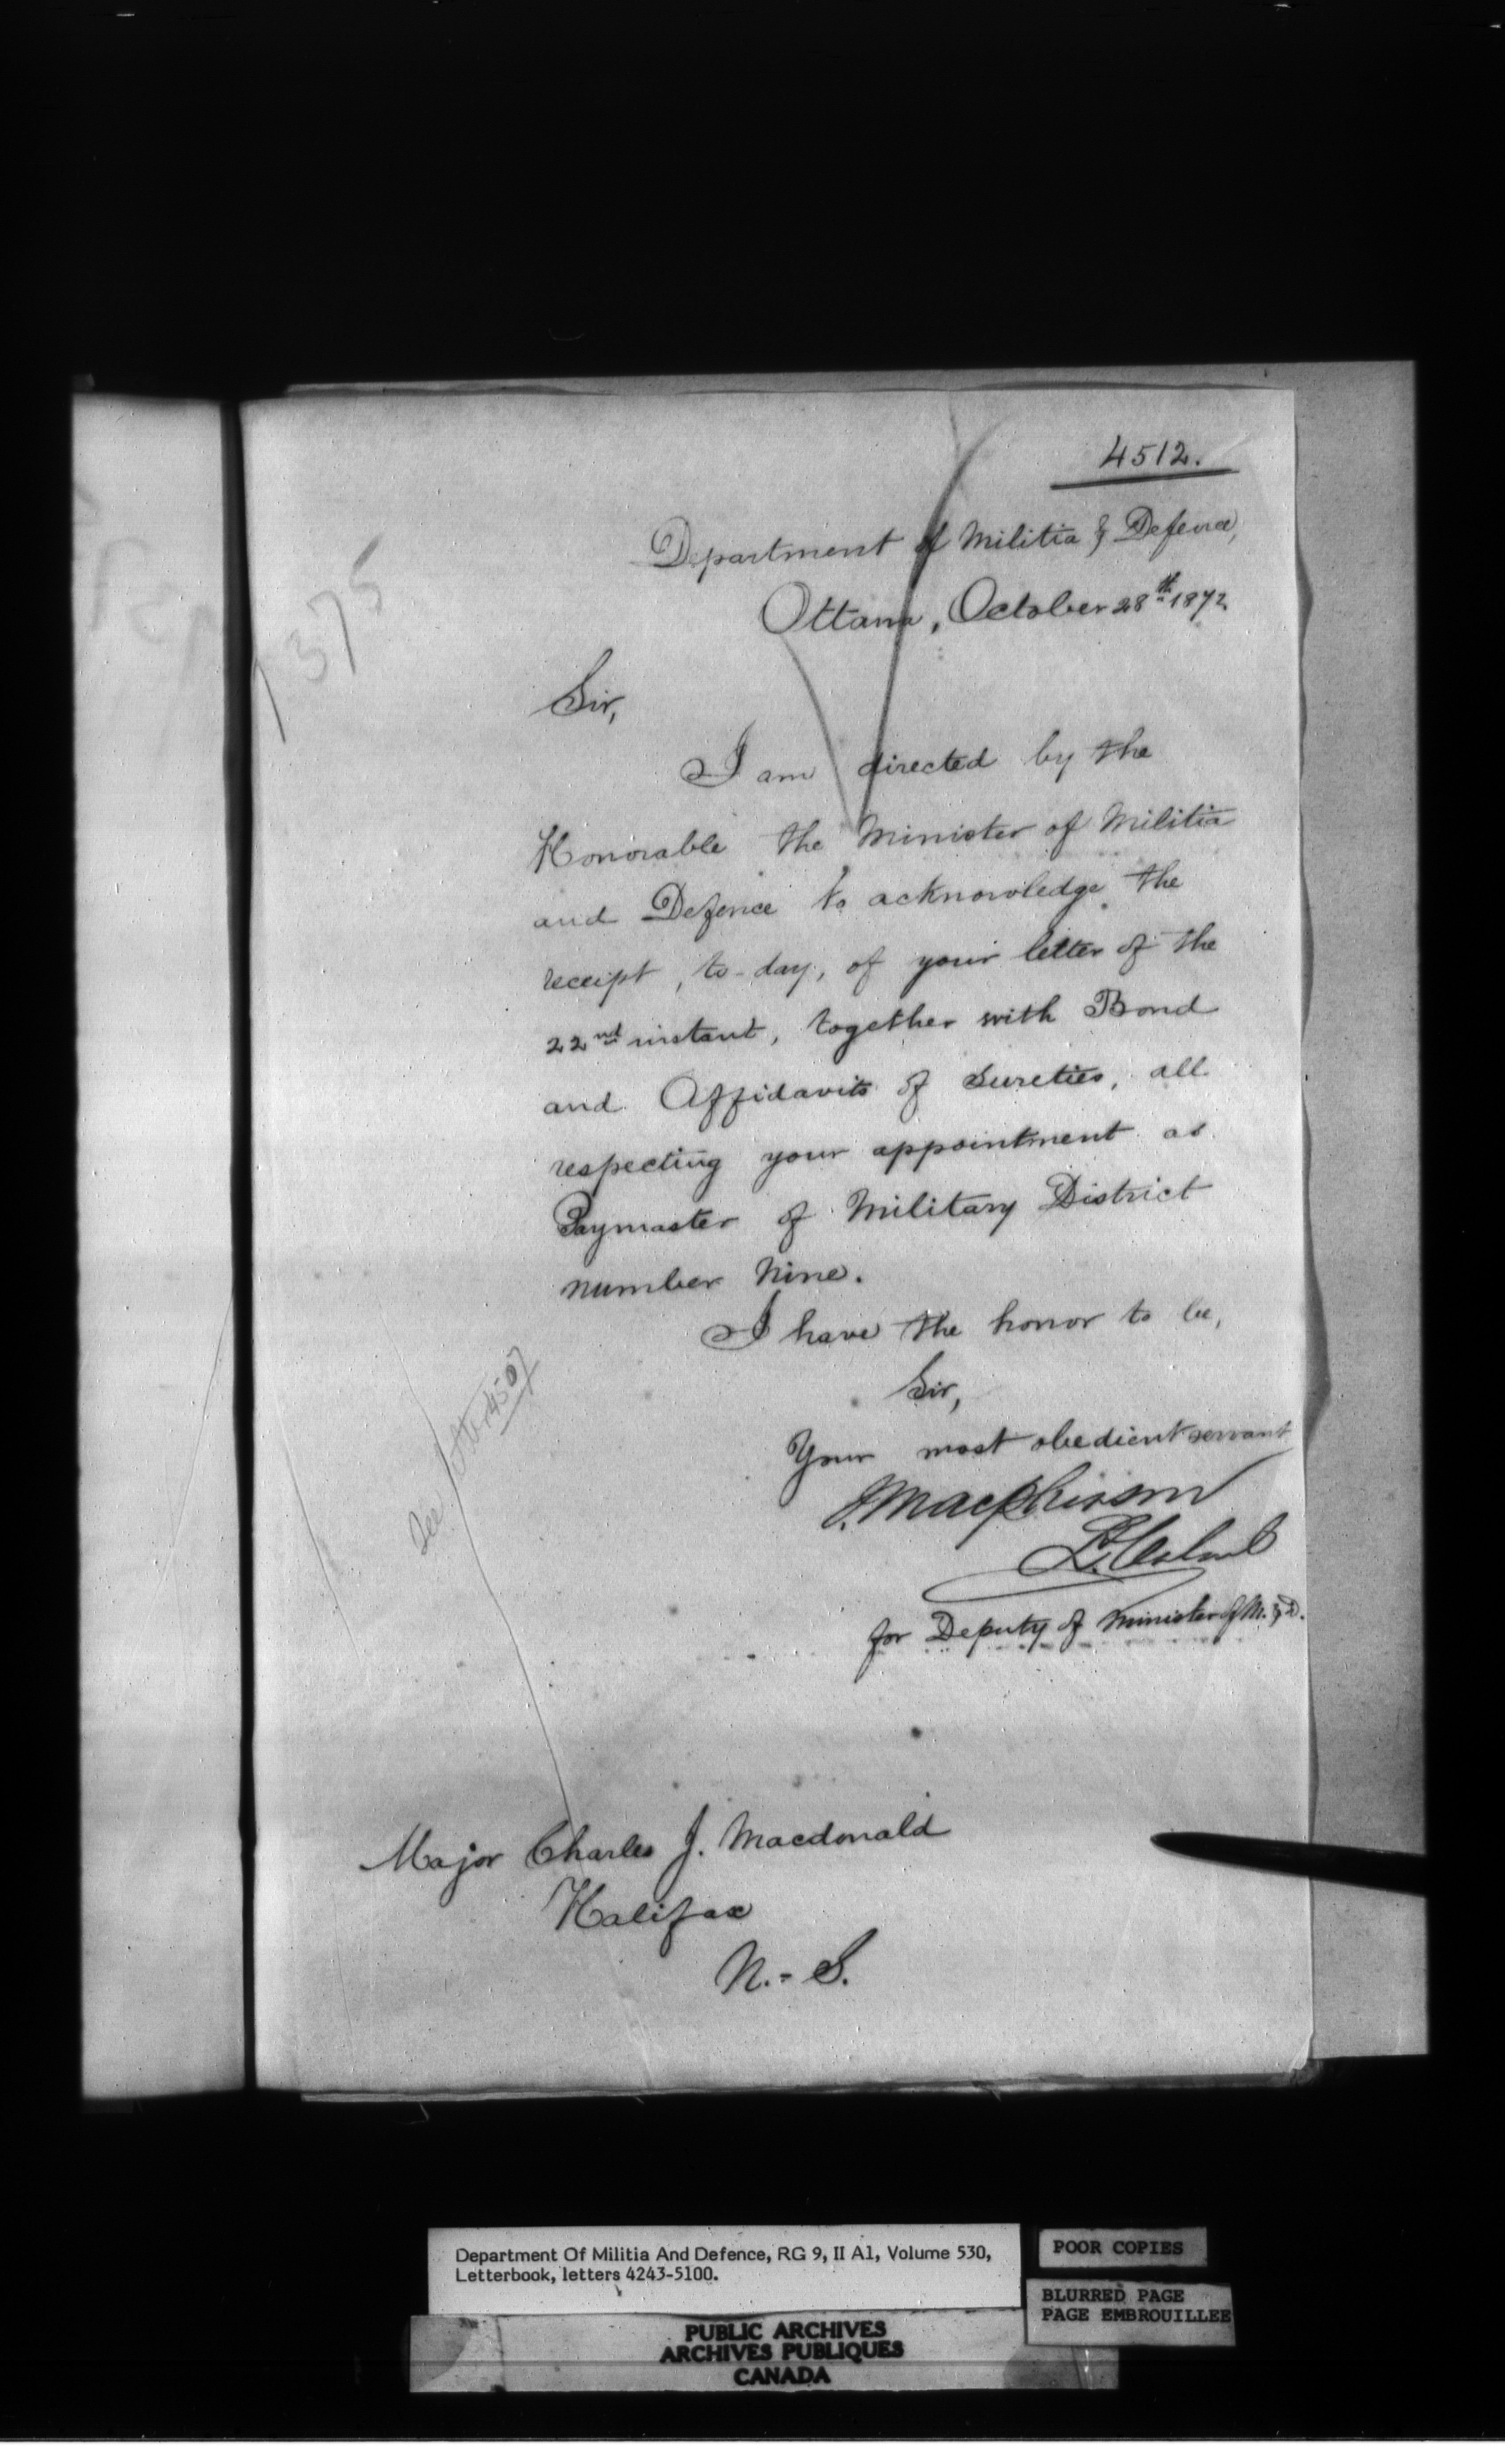 4512.
Department of Militia & Defence,
Ottawa, October 28th 1872
1375
Sir,
I am directed by the
Honorable the Minister of Militia
and Defence to acknowledge the
receipt, to-day, of your letter of the
22nd instant, together with Bond
and Affidavits of Sureties, all
respecting your appointment as
Paymaster of Military District
number Nine.
I have the honor to be,
Sir,
Your most obedient servant
J. Macpherson
Lt. Colonel
for Deputy of Minister of M. & D.
See letter 4507
Major Charles J. Macdonald
Halifax
N.-S.
Department Of Militia And Defence, RG 9, II A1, Volume 530,
Letterbook, letters 4243-5100.
POOR COPIES
BLURRED PAGE
PAGE EMBROUILLEE
PUBLIC ARCHIVES
ARCHIVES PUBLIQUES
CANADA